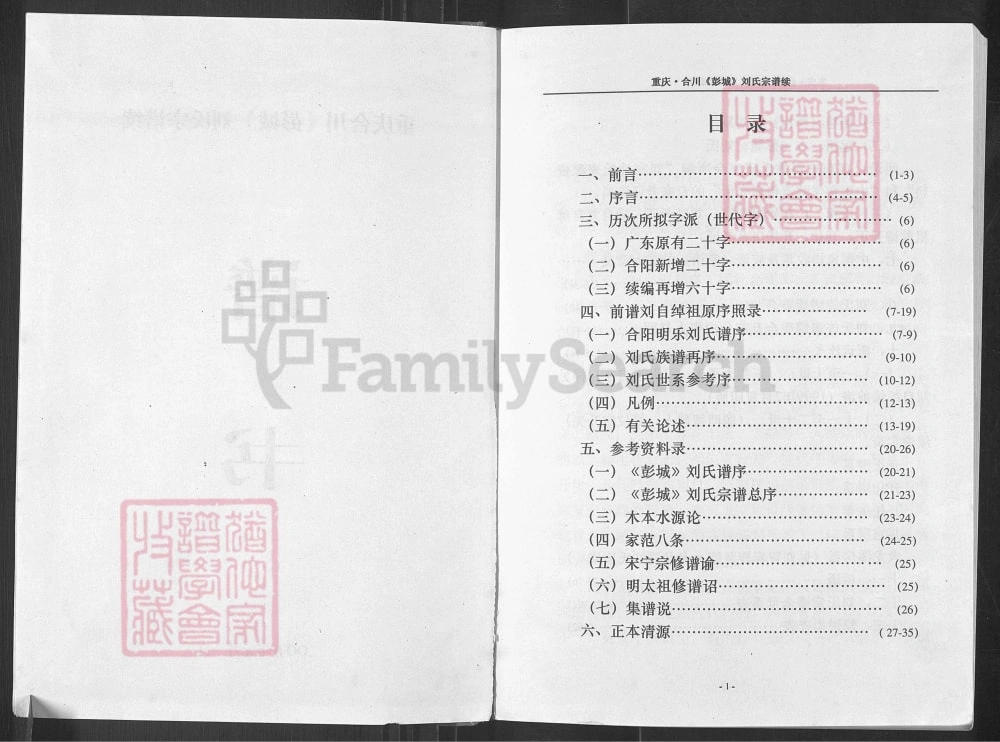 重庆·合川《彭城》刘氏宗谱续
目 录
一、前言………………………………(1-3)
二、序言………………………………(4-5)
三、历次所拟字派（世代字）……………(6)
（一）广东原有二十字…………………(6)
（二）合阳新增二十字…………………(6)
（三）续编再增六十字…………………(6)
四、前谱刘自绰祖原序照录……………(7-19)
（一）合阳明乐刘氏谱序………………(7-9)
（二）刘氏族谱再序……………………(9-10)
（三）刘氏世系参考序…………………(10-12)
（四）凡例………………………………(12-13)
（五）有关论述…………………………(13-19)
五、参考资料录…………………………(20-26)
（一）《彭城》刘氏谱序………………(20-21)
（二）《彭城》刘氏宗谱总序…………(21-23)
（三）木本水源论………………………(23-24)
（四）家范八条…………………………(24-25)
（五）宋宁宗修谱谕……………………(25)
（六）明太祖修谱诏……………………(25)
（七）集谱说……………………………(26)
六、正本清源……………………………(27-35)
-1-
FamilySearch